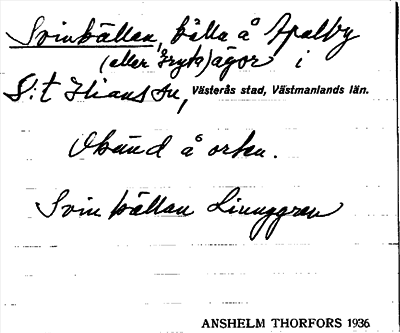 Svinkällan, källa å Apalby
(eller Gryta)ägor i
S:t Ilians sn, Västerås stad, Västmanlands län.
Okänd å orten.
Svinkällan Linnggren
ANSHELM THORFORS 1936